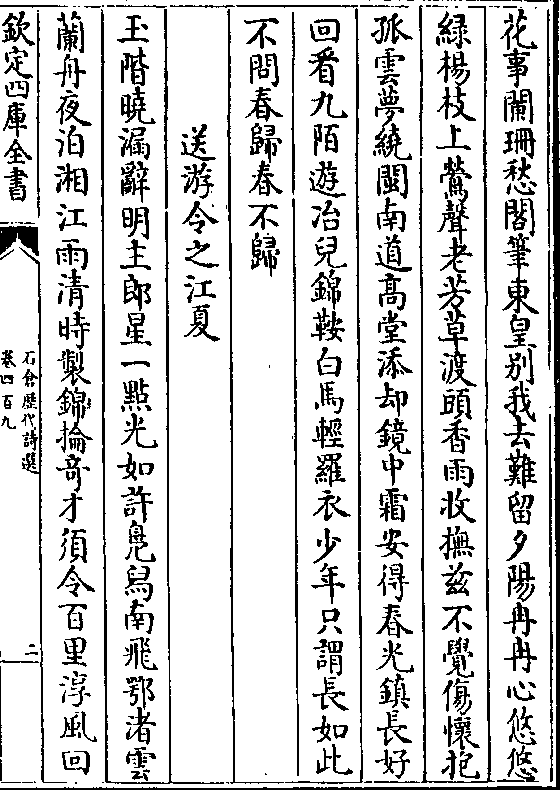 花事闌珊愁閣筆東皇别我去難留夕陽冉冉心悠悠
緑楊枝上鶯聲老芳草渡頭香雨收撫兹不覺傷懷抱
孤雲夢繞閩南道髙堂添却鏡中霜安得春光鎮長好
回看九陌遊冶兒錦鞍白馬輕羅衣少年只謂長如此
不問春歸春不歸
送游令之江夏
玉階曉漏辭明主郎星一點光如許鳬舄南飛鄂渚雲
蘭舟夜泊湘江雨清時製錦掄竒才須令百里淳風回
欽定四庫全書
石倉歴代詩選
卷四百九
二